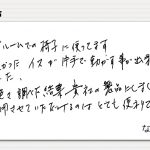 ルームでの椅子に使ってます
かった イスが片手で動かす事が出来
した。
色々調べた結果、貴社の製品にしまし
用させていただけるのは とても便利で
な